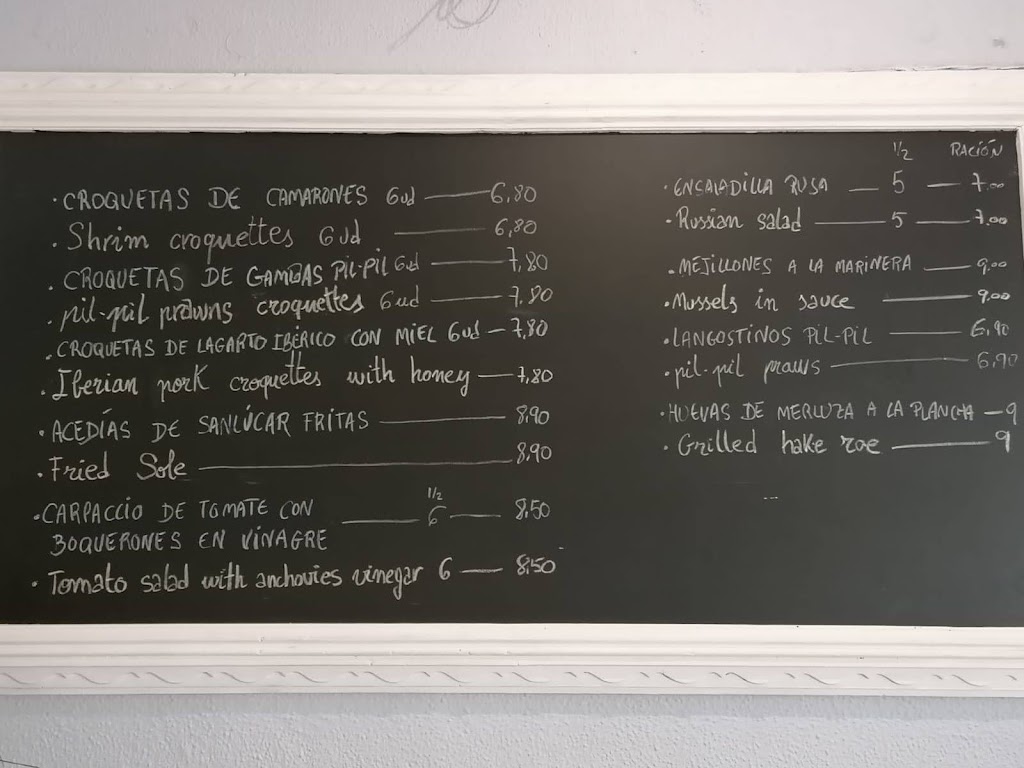 · CROQUETAS DE CAMARONES 6ud — 6,80
· Shrim croquettes 6ud — 6,80
· CROQUETAS DE GAMBAS PIL-PIL 6ud — 7,80
· pil-pil prawns croquettes 6ud — 7,80
· CROQUETAS DE LAGARTO IBÉRICO CON MIEL 6ud — 7,80
· Iberian pork croquettes with honey — 7,80
· ACEDÍAS DE SANLÚCAR FRITAS — 8,90
· Fried Sole — 8,90
1/2
· CARPACCIO DE TOMATE CON — 6 — 8,50
BOQUERONES EN VINAGRE
· Tomato salad with anchovies vinegar 6 — 8,50
1/2 RACIÓN
· ENSALADILLA RUSA — 5 — 7,00
· Russian salad — 5 — 7,00
· MEJILLONES A LA MARINERA — 9,00
· Mussels in sauce — 9,00
· LANGOSTINOS PIL-PIL — 6,90
· pil-pil praws — 6,90
· HUEVAS DE MERLUZA A LA PLANCHA — 9
· Grilled hake roe — 9